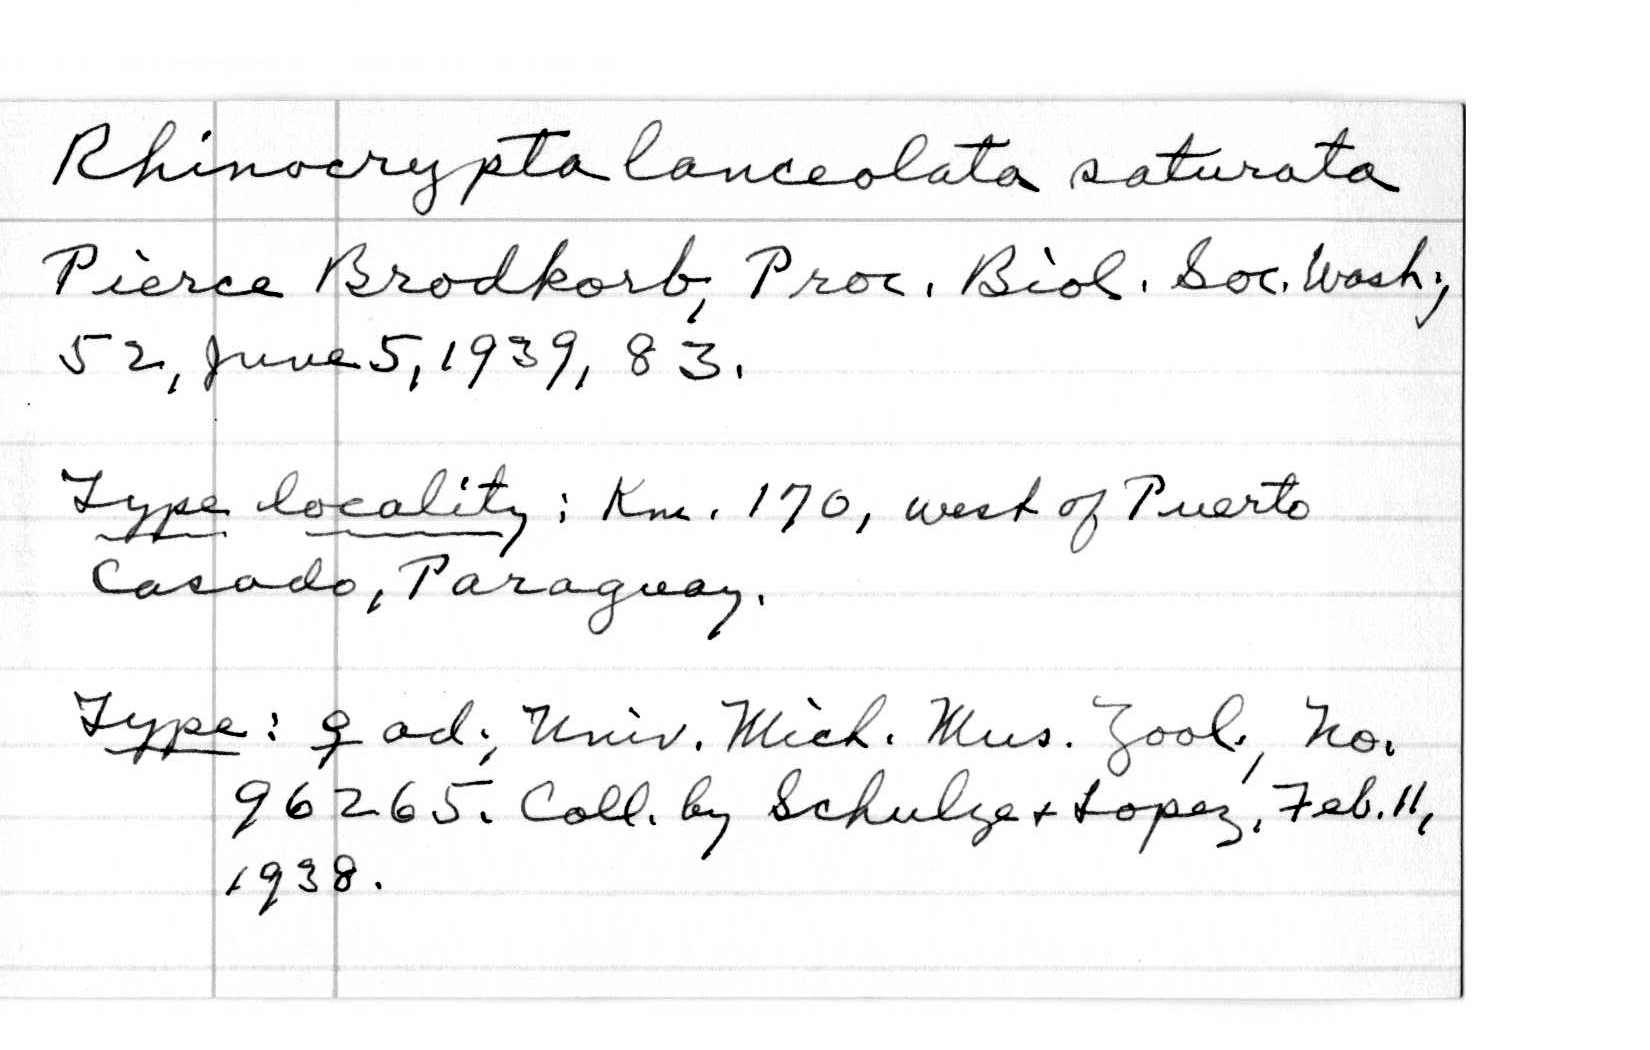 Rhinocrypta lanceolata saturata
Pierce Brodkorb, Proc. Biol. Soc. Wash.,
52, June 5, 1939, 83.
Type locality: Km. 170, west of Puerto
Casado, Paraguay.
Type: ♀ ad., Univ. Mich. Mus. Zool., No.
96265. Coll. by Schulze + Lopez, Feb. 11,
1938.